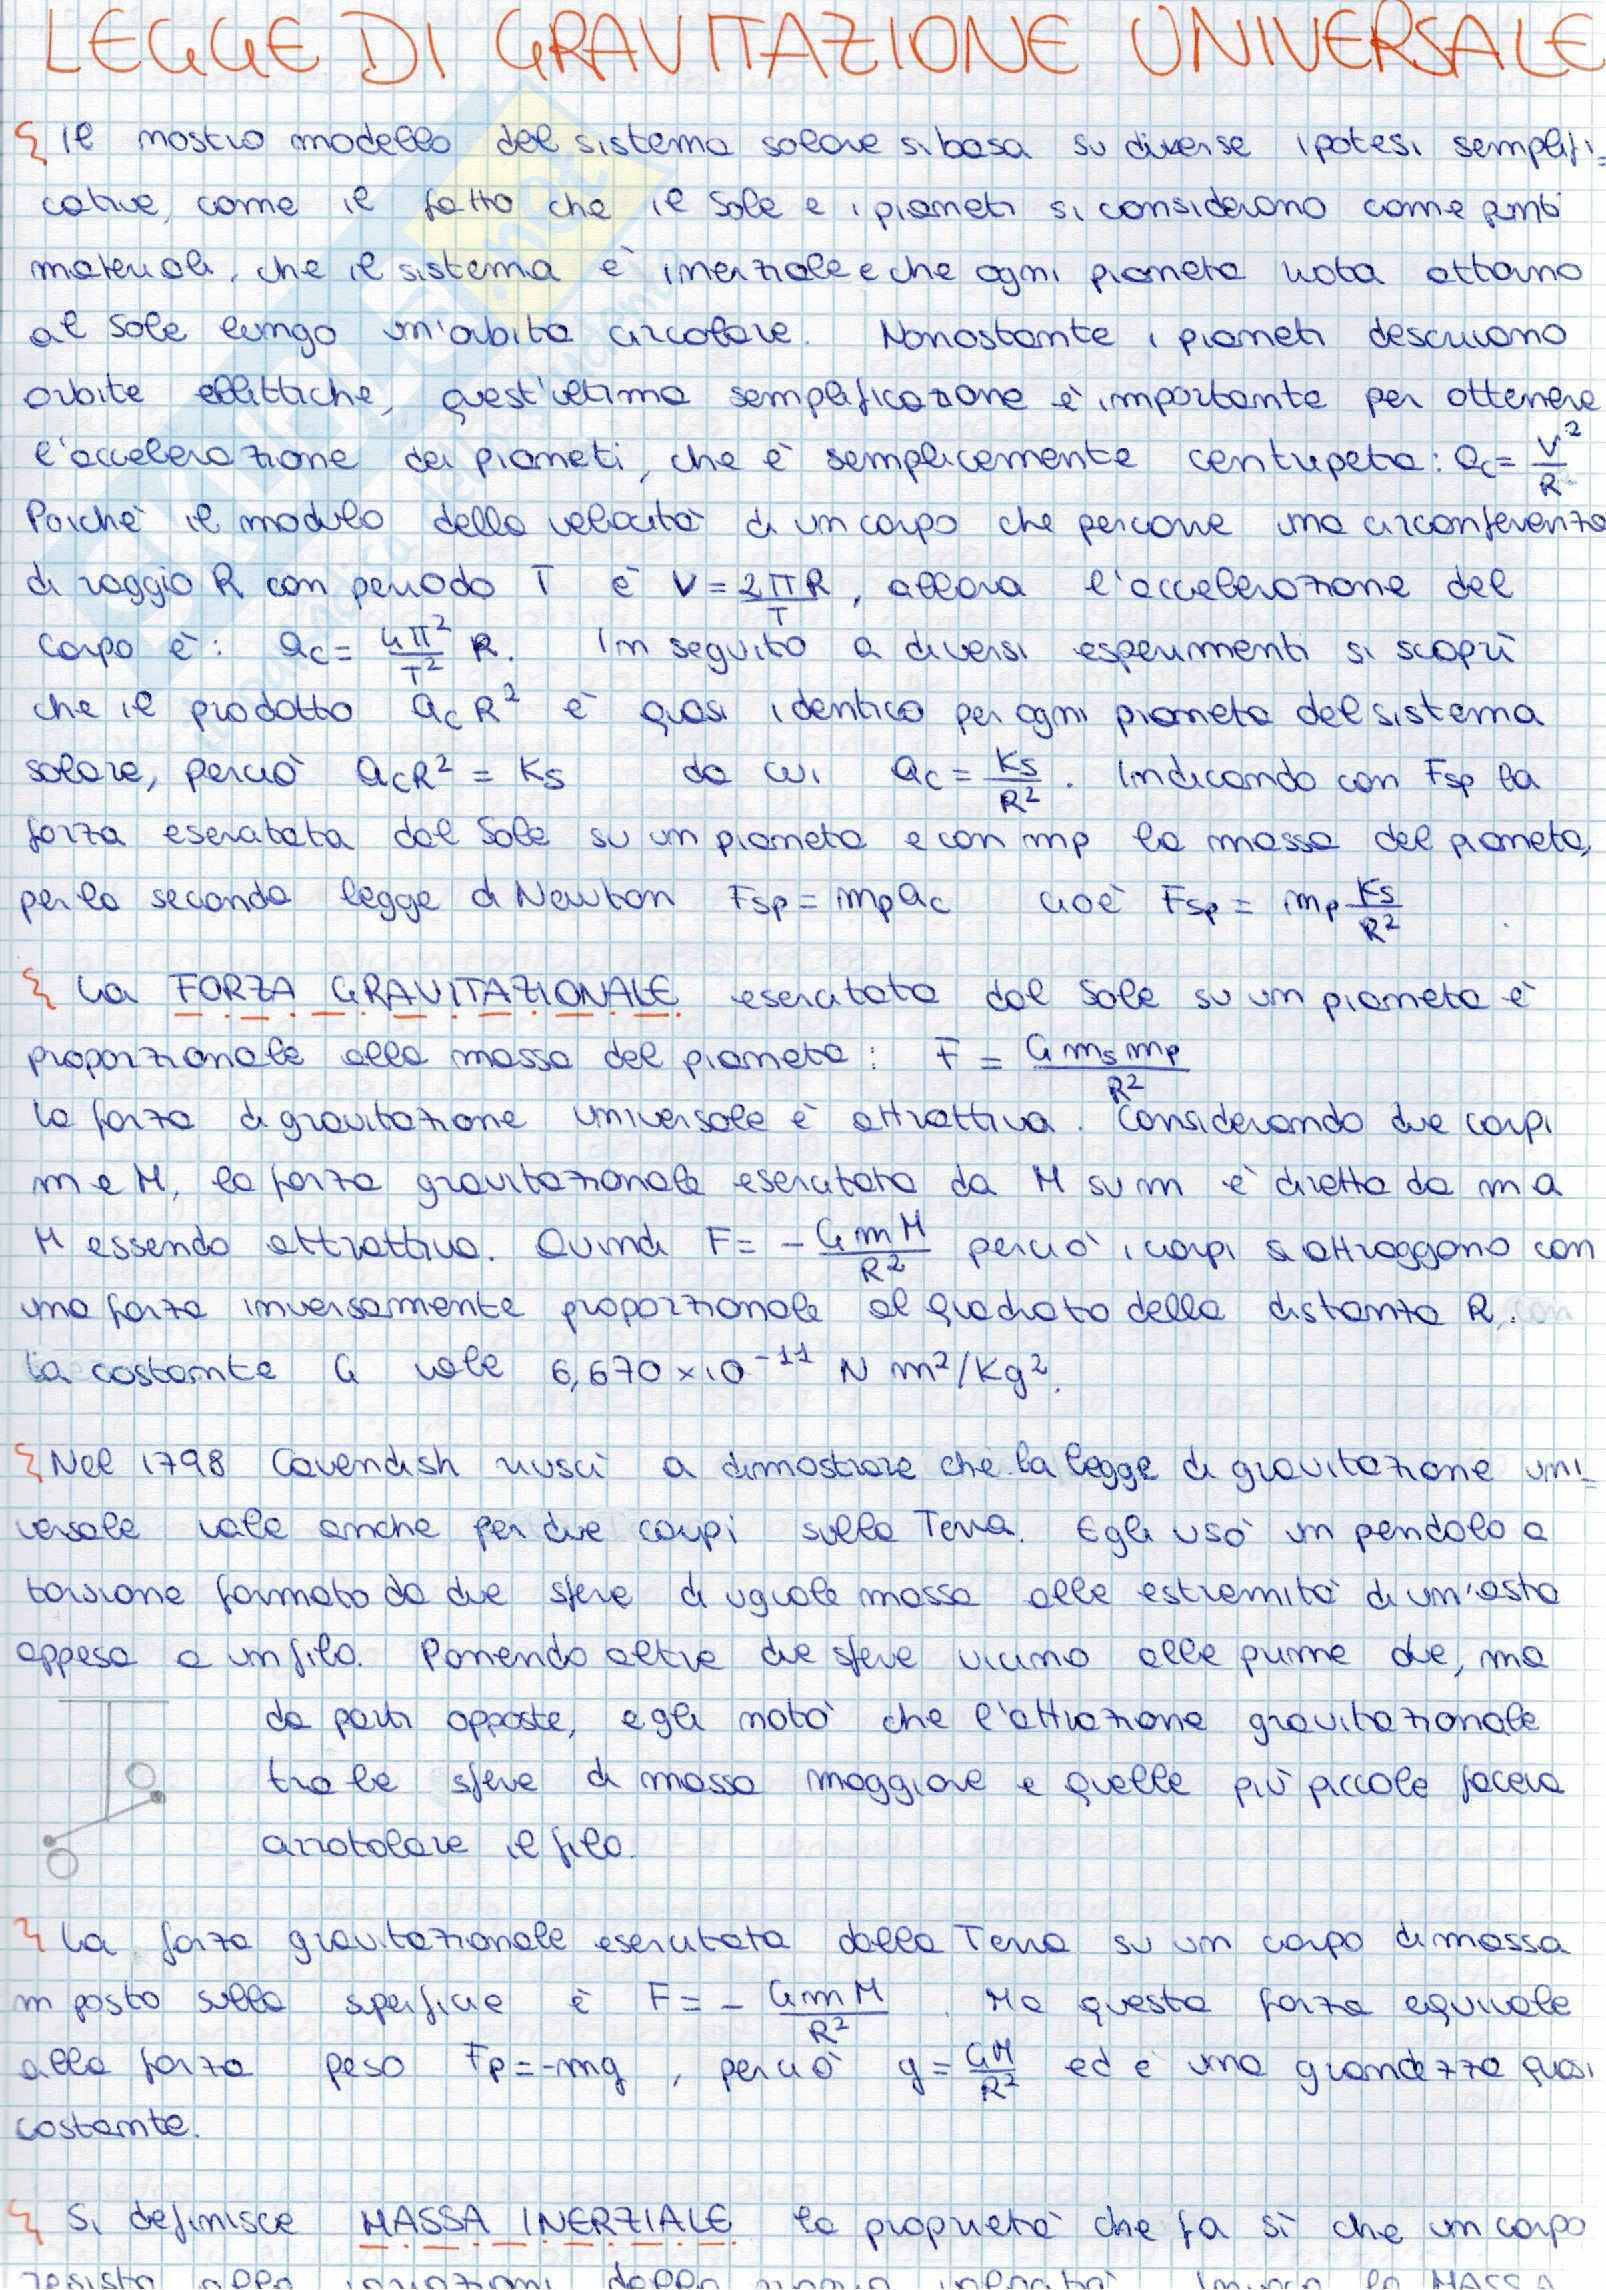 LEGGE DI GRAVITAZIONE UNIVERSALE
Il nostro modello del sistema solare si basa su diverse ipotesi semplifi-
cative, come il fatto che il Sole e i pianeti si considerano come punti
materiali, che il sistema è inerziale e che ogni pianeta ruota attorno
al Sole lungo un'orbita circolare. Nonostante i pianeti descrivono
orbite ellittiche, quest'ultima semplificazione è importante per ottenere
l'accelerazione dei pianeti, che è semplicemente centripeta: ac = V²/R
Poiché il modulo della velocità di un corpo che percorre una circonferenza
di raggio R con periodo T è V = 2πR/T, allora l'accelerazione del
corpo è: ac = 4π²/T² R. In seguito a diversi esperimenti si scoprì
che il prodotto ac R² è quasi identico per ogni pianeta del sistema
solare, perciò ac R² = Ks da cui ac = Ks/R². Indicando con Fsp la
forza esercitata dal Sole su un pianeta e con mp la massa del pianeta,
per la seconda legge di Newton Fsp = mp ac cioè Fsp = mp Ks/R²
La FORZA GRAVITAZIONALE esercitata dal Sole su un pianeta è
proporzionale alla massa del pianeta: F = G ms mp/R²
La forza di gravitazione universale è attrattiva. Considerando due corpi
m e M, la forza gravitazionale esercitata da M su m è diretta da m a
M essendo attrattiva. Quindi F = - G m M/R² perciò i corpi si attraggono con
una forza inversamente proporzionale al quadrato della distanza R.
La costante G vale 6,670 × 10⁻¹¹ N m²/Kg².
Nel 1798 Cavendish riuscì a dimostrare che la legge di gravitazione uni-
versale vale anche per due corpi sulla Terra. Egli usò un pendolo a
torsione formato da due sfere di uguale massa alle estremità di un'asta
appesa a un filo. Ponendo altre due sfere vicino alle prime due, ma
da parti opposte, egli notò che l'attrazione gravitazionale
tra le sfere di massa maggiore e quelle più piccole faceva
arrotolare il filo.
La forza gravitazionale esercitata dalla Terra su un corpo di massa
m posto sulla superficie è F = - G m M/R². Ma questa forza equivale
alla forza peso Fp = -mg, perciò g = GM/R² ed è una grandezza quasi
costante.
Si definisce MASSA INERZIALE la proprietà che fa sì che un corpo